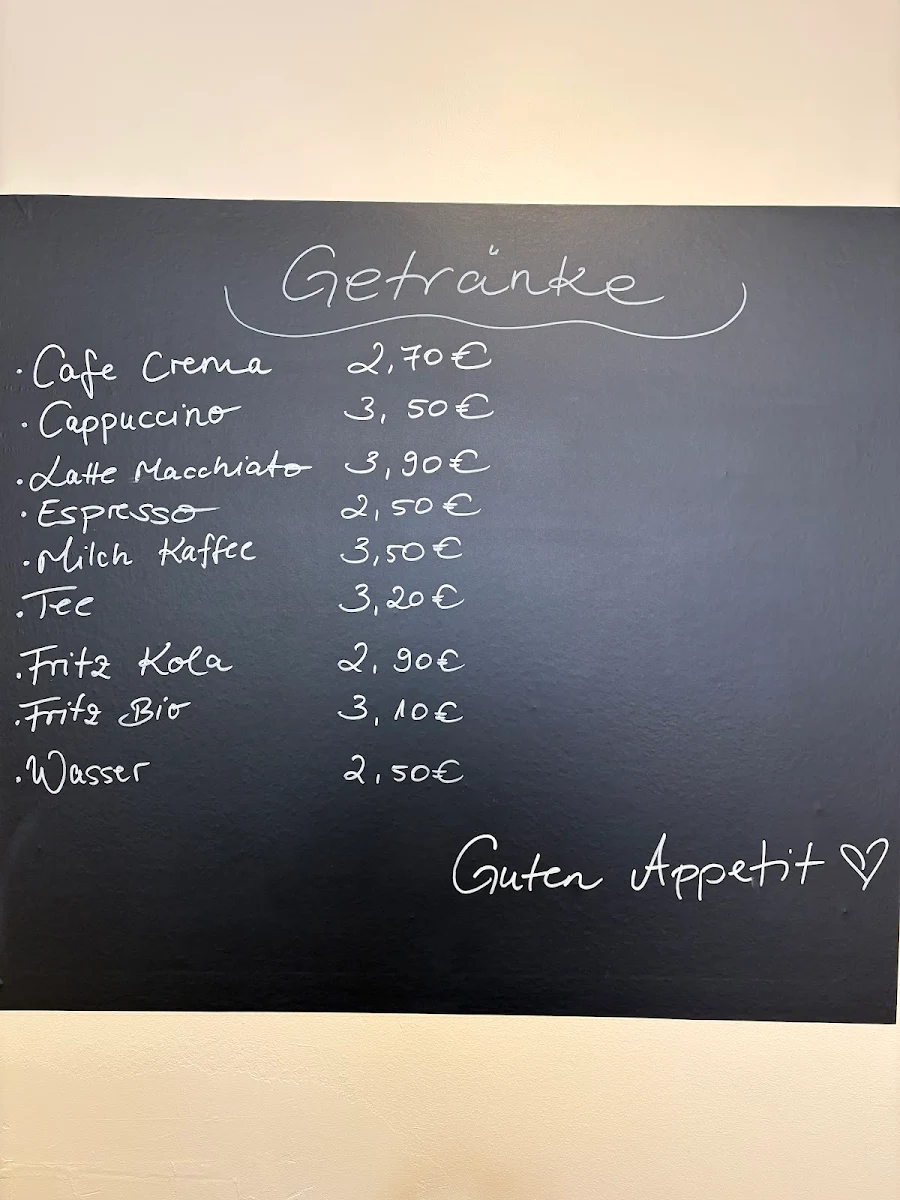 Getränke
· Cafe Crema 2,70€
· Cappuccino 3,50€
· Latte Macchiato 3,90€
· Espresso 2,50€
· Milch Kaffee 3,50€
· Tee 3,20€
· Fritz Kola 2,90€
· Fritz Bio 3,10€
· Wasser 2,50€
Guten Appetit ♡